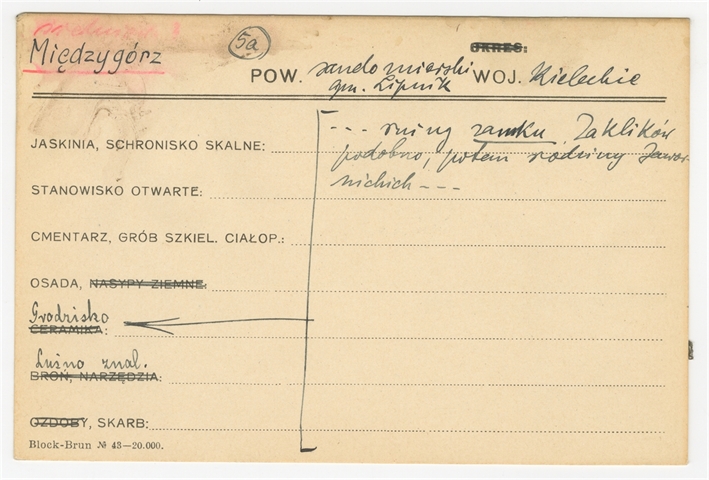 Międzygórz
5a
OKRES:
POW. sandomierski WOJ. Kieleckie
gm. Lipnik
--- ruiny zamku Zaklików
JASKINIA, SCHRONISKO SKALNE:
podobno, potem rodziny Jawor
STANOWISKO OTWARTE:
nickich ---
CMENTARZ, GRÓB SZKIEL. CIAŁOP.:
OSADA, NASYPY ZIEMNE:
Grodzisko
CERAMIKA:
Luźno znal.
BROŃ, NARZĘDZIA:
OZDOBY, SKARB:
Block-Brun № 43—20.000.